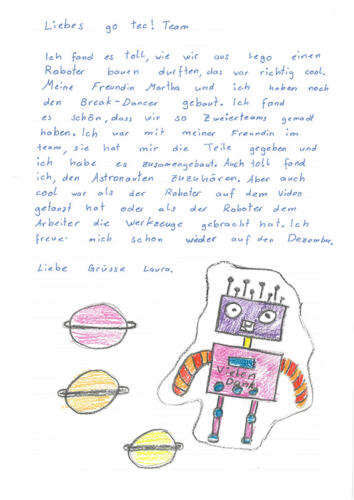 Liebes go tec! Team
Ich fand es toll, wie wir aus Lego einen
Roboter bauen durften, das war richtig cool.
Meine Freundin Martha und ich haben noch
den Break-Dancer gebaut. Ich fand
es schön, dass wir so Zweierteams gemacht
haben. Ich war mit meiner Freundin im
team, sie hat mir die Teile gegeben und
ich habe es zusammengebaut. Auch toll fand
ich, den Astronauten zuzuhören. Aber auch
cool war als der Roboter auf dem Video
getanzt hat oder als der Roboter dem
Arbeiter die Werkzeuge gebracht hat. Ich
freue mich schon wieder auf den Dezember.
Liebe Grüsse Laura.
Vielen
Dank